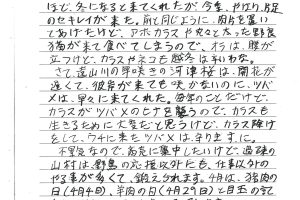 ほど、冬になると来てくれたが今年、やはり片足
のセキレイが来た。前と同じように、肉片を置い
てあげたけど、アホカラスや丸々太った野良
猫が来て食べてしまうので、オラは、腹が
立つけど、カラスやネコも越冬は辛いわな。
さて、遠山川の早咲きの河津桜は、開花が
遅くて、彼岸が来ても咲かないのに、ツバ
メは、早々に来てくれた。毎年のことだけど、
カラスがツバメのヒナを襲うので、カラスも
生きるために大変だと思うけど、カラス除け
をして、ウチに来たツバメは、守ります。
不景気なので、商売に集中したいけど、過疎の
山村は、野鳥の応援以外にも、仕事以外の
やる事が多くて、鍛えられます。4月は、猪肉の
日(4月4日)、羊肉の日(4月29日)と目玉の記